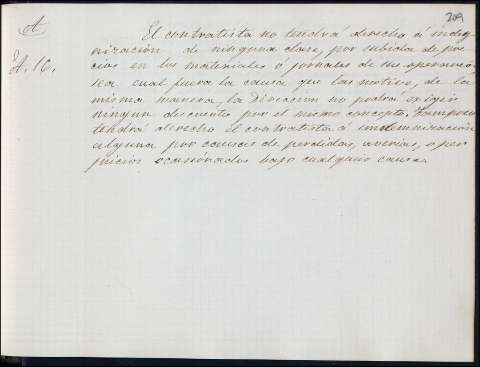 209
A
El contratista no tendrá derecho á indem-
A. 16.
nizacion de ninguna clase, por subida de pre-
cios en los materiales ó jornales de sus operarios
sea cual fuera la causa que las motive, de la
misma manera, la Direccion no podrá exigir
ningun descuento por el mismo concepto. Tampoco
tendrá derecho el contratista á indemnizacion
alguna por causas de perdidas, averias, o per
juicios ocasionados bajo cualquier causa.